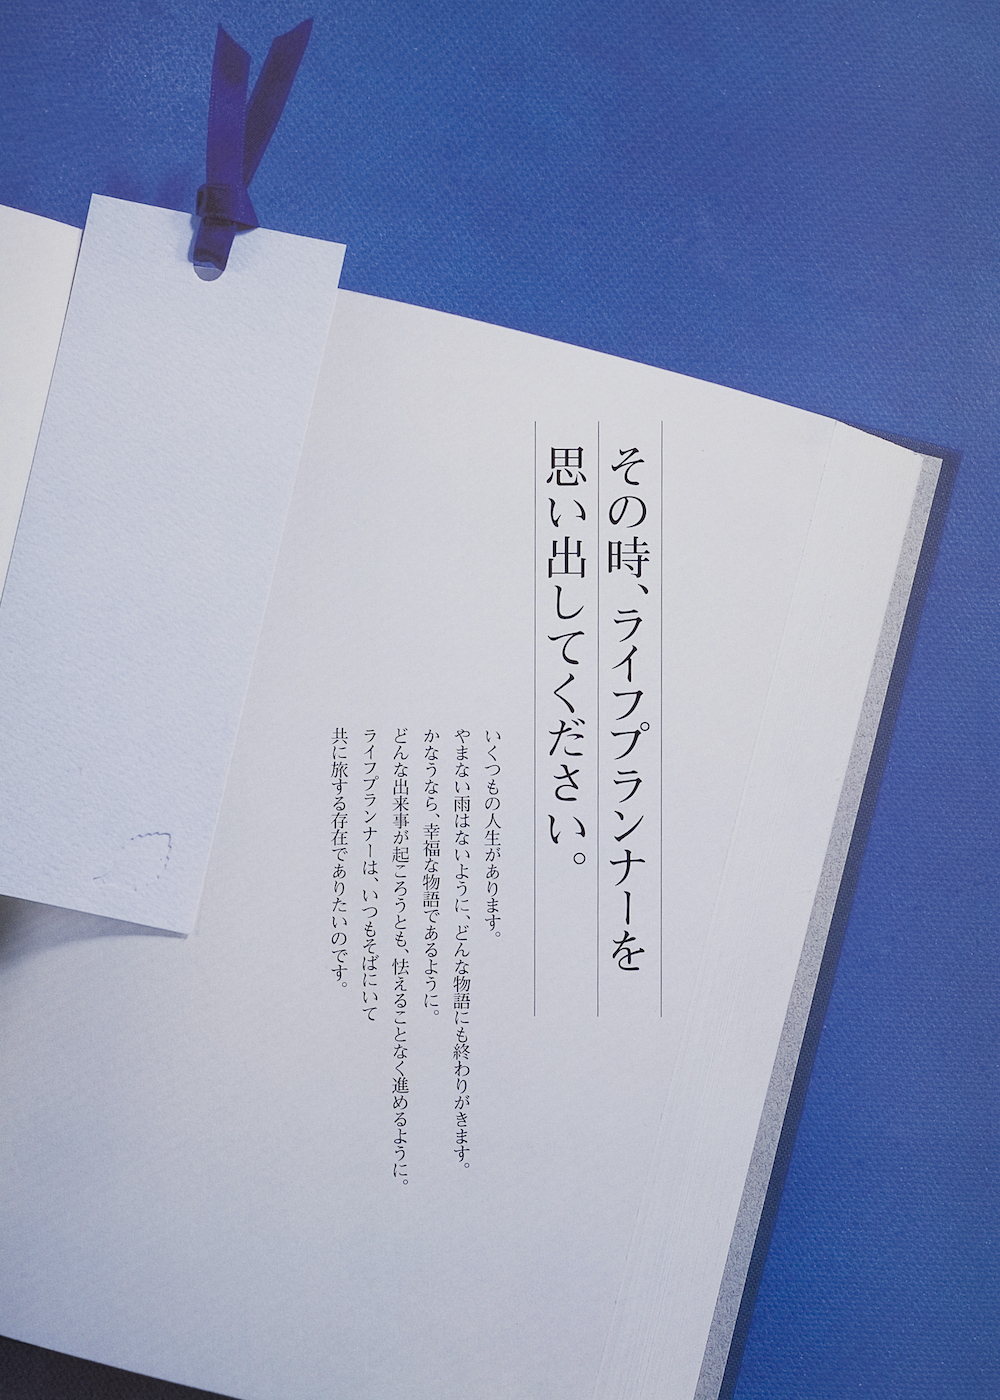 その時、ライフプランナーを
思い出してください。
いくつもの人生があります。
やまない雨はないように、どんな物語にも終わりがきます。
かなうなら、幸福な物語であるように。
どんな出来事が起ころうとも、怯えることなく進めるように。
ライフプランナーは、いつもそばにいて
共に旅する存在でありたいのです。